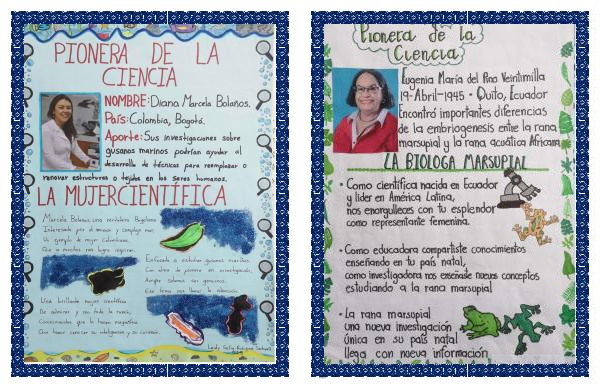 PIONERA DE LA
CIENCIA
NOMBRE: Diana Marcela Bolaños.
País: Colombia, Bogotá.
Aporte: Sus investigaciones sobre
gusanos marinos podrían ayudar al
desarrollo de técnicas para reemplazar o
renovar estructuras o tejidos en los seres humanos.
LA MUJER CIENTÍFICA
Marcela Bolaños, una verdadera Bogotana
Interesada por el
Un ejemplo de mujer Colombiana,
Que a muchos nos logra inspirar.
Enfocada a estudiar gusanos marinos,
Con afán de ponerse en investigación,
Una brillante mujer científica
De admirar y
Que hacer conocer su inteligencia y su corazón.
Pionera de la
Ciencia
Eugenia María del Pino Veintimilla
19-Abril-1945 - Quito, Ecuador
Encontró importantes diferencias
de la embriogenesis entre la rana
marsupial y la rana acuática Africana
LA BIOLOGA MARSUPIAL
• Como científica nacida en Ecuador
y líder en América Latina,
nos enorgulleces con tu esplendor
como representante femenina.
• Como educadora compartiste conocimientos
enseñando en tu país natal,
como investigadora nos enseñaste nuevos conceptos
estudiando a la rana marsupial
• La rana marsupial
una nueva investigación
única en su país natal
llega con nueva información